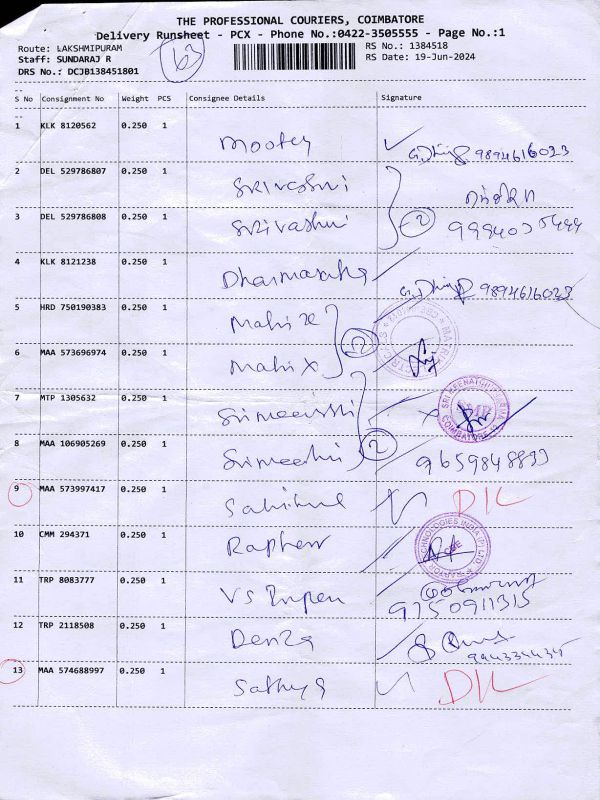 THE PROFESSIONAL COURIERS, COIMBATORE
Delivery Runsheet - PCX - Phone No.:0422-3505555 - Page No.:1
Route: LAKSHMIPURAM
63
RS No.: 1384518
Staff: SUNDARAJ R
RS Date: 19-Jun-2024
DRS No.: DCJB138451801
S No Consignment No Weight PCS Consignee Details Signature
1 KLK 8120562 0.250 1 9894616023
2 DEL 529786807 0.250 1 Srivashni
3 DEL 529786808 0.250 1 Srivashni 2
4 KLK 8121238 0.250 1 9894616023
5 HRD 750190383 0.250 1 Mahi X
6 MAA 573696974 0.250 1 Mahi X 2
7 MTP 1305632 0.250 1
8 MAA 106905269 0.250 1 2
9 MAA 573997417 0.250 1 DIL
10 CMM 294371 0.250 1
11 TRP 8083777 0.250 1 9750911315
12 TRP 2118508 0.250 1
13 MAA 574688997 0.250 1 Sathya DIL